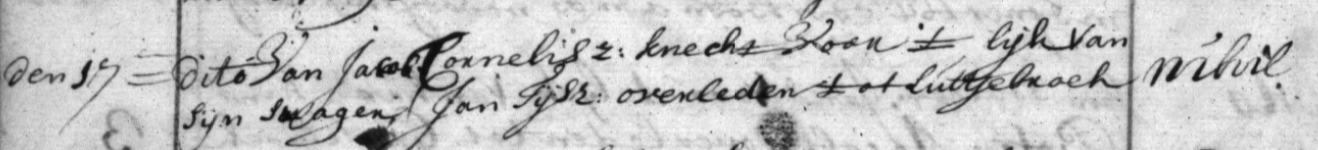 den 17 = dito Van Jacob Cornelisz: knecht Voor 't lijk Van nihil
sijn swager Jan Tijsz: overleden tot Luttjebroek